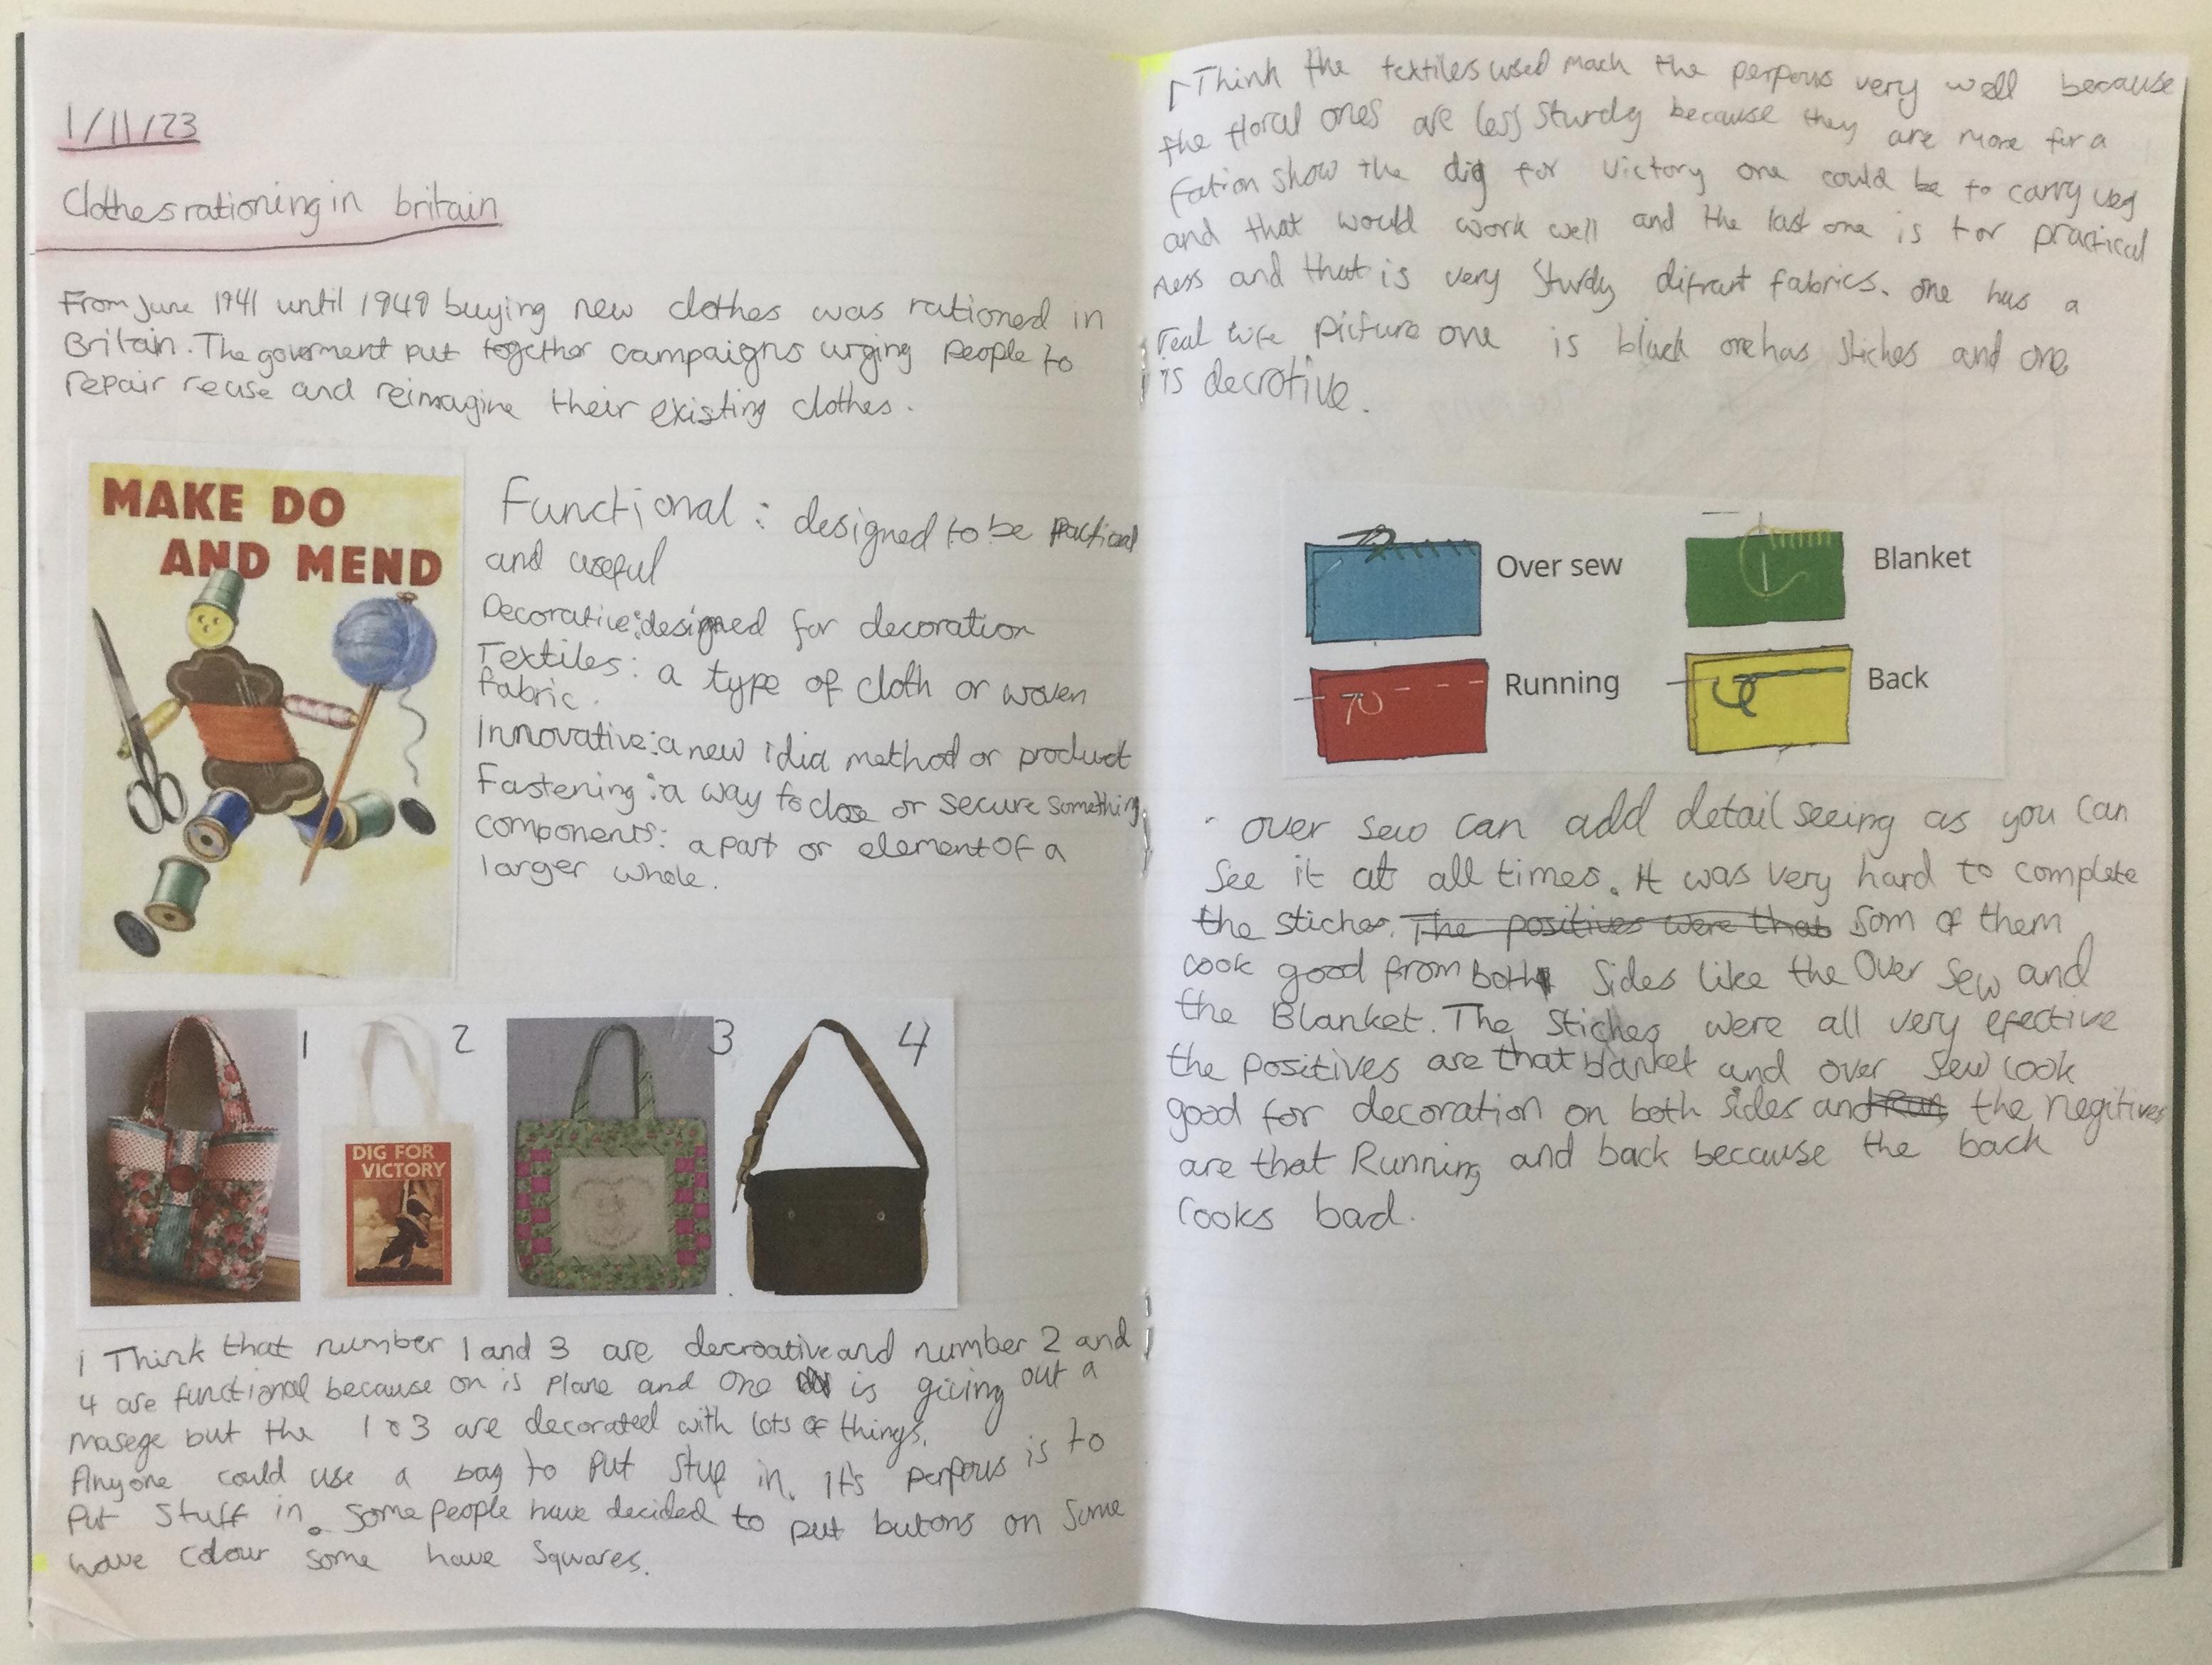 1/11/23
Clothes rationing in britain
From June 1941 until 1949 buying new clothes was rationed in
Britain. The goverment put together campaigns urging people to
repair reuse and reimagine their existing clothes.
MAKE DO
AND MEND
Functional : designed to be practical
and useful
Decorative: designed for decoration
Textiles: a type of cloth or woven
fabric.
Innovative: a new idia method or product
Fastening: a way to close or secure something
components: a part or element of a
larger whole.
1
2
3
4
DIG FOR
VICTORY
i Think that number 1 and 3 are decroative and number 2 and
4 are functional because on is plane and one is giving out a
masege but the 1 o 3 are decorated with lots of things.
Anyone could use a bag to put stuf in. It's perpous is to
Put stuff in. Some people have decided to put butons on some
have colour some have squares.
I Think the textiles used mach the perpous very well because
the floral ones are less sturdy because they are more for a
fation show the dig for victory one could be to carry veg
and that would work well and the last one is for practical
ness and that is very sturdy difrant fabrics. one has a
real life picture one is black one has stiches and one
is decrotive.
Over sew
Blanket
Running
Back
over sew can add detail seeing as you can
see it at all times. It was very hard to complete
the stiches. The positives were that som of them
look good from both sides like the Over sew and
the Blanket. The stiches were all very efective
the positives are that blanket and over sew look
good for decoration on both sides and Run the negitives
are that Running and back because the back
looks bad.